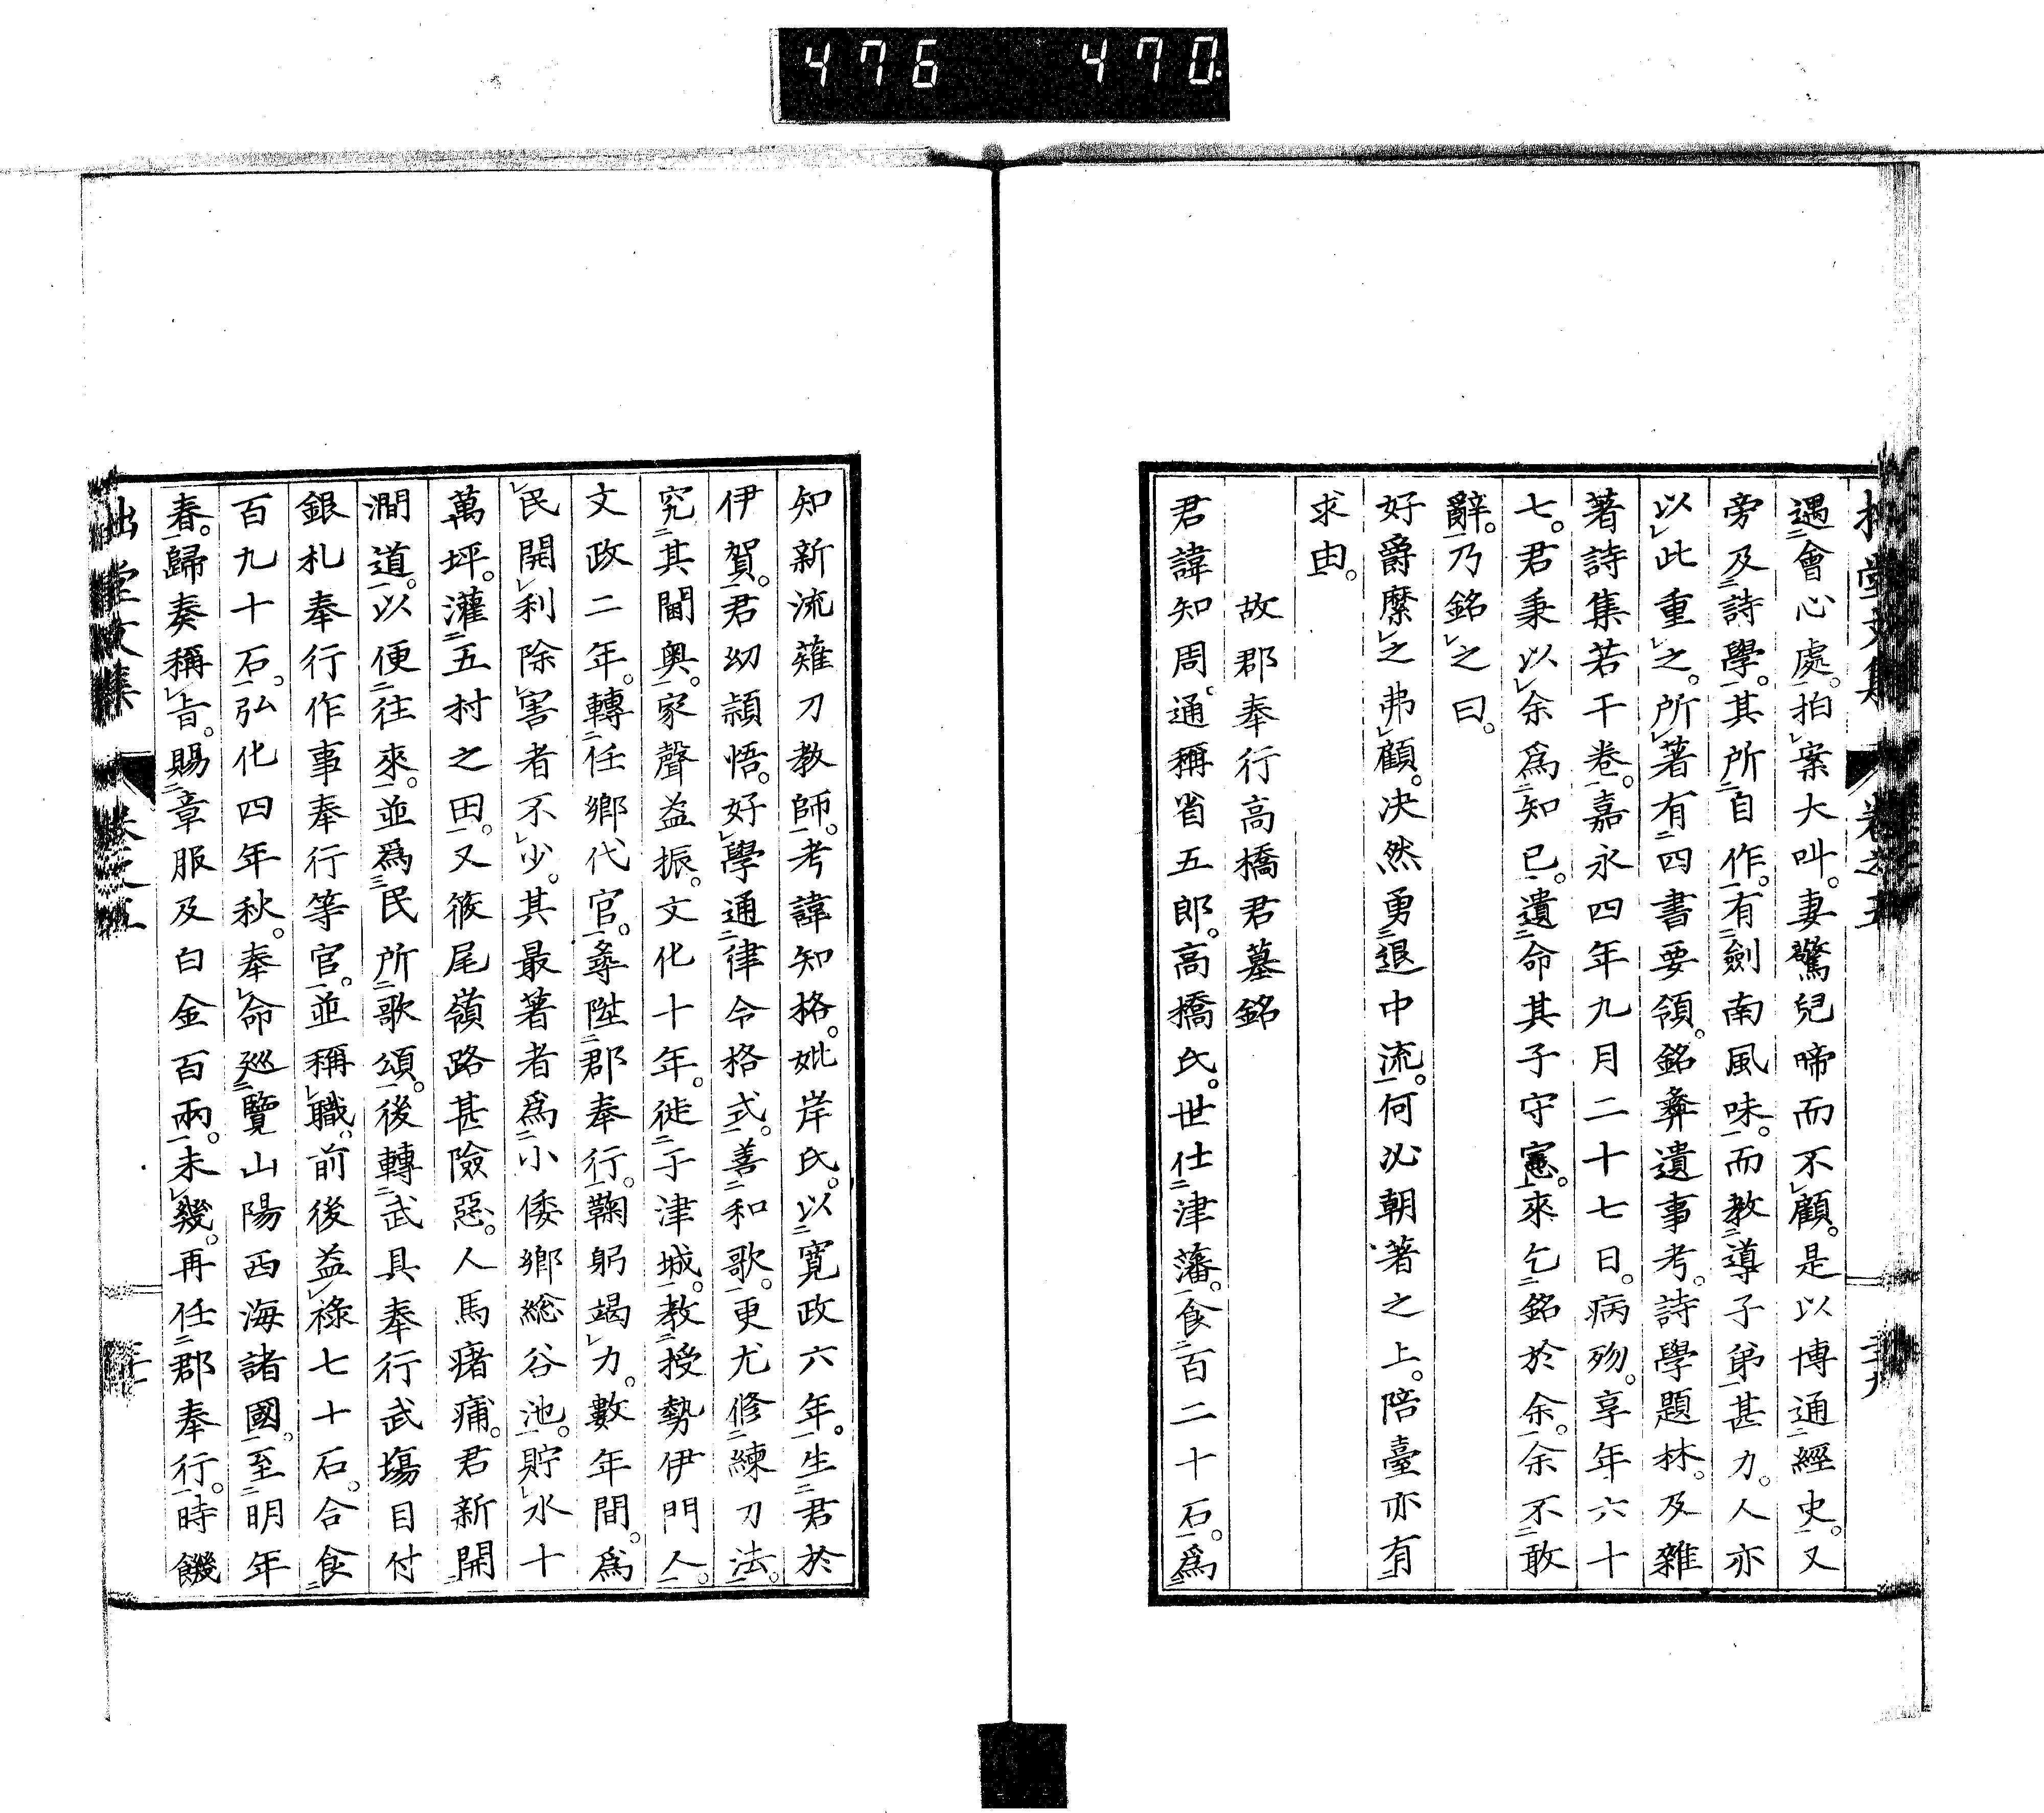 476 470
拙堂文集 卷之五 二十九
遇會心處。拍案大叫。妻驚兒啼而不顧。是以博通經史。又
旁及詩學。其所自作。有劍南風味。而教導子弟甚力。人亦
以此重之。所著有四書要領。銘彝遺事考。詩學題林。及雜
著詩集若干卷。嘉永四年九月二十七日。病歾。享年六十
七。君秉以余爲知已。遺命其子守憲。來乞銘於余。余不敢
辭。乃銘之曰。
好爵縻之弗顧。决然勇退中流。何必朝著之上。陪臺亦有
求由。
故郡奉行高橋君墓銘
君諱知周。通稱省五郎。高橋氏。世仕津藩。食百二十石。爲
知新流薙刀教師。考諱知格。妣岸氏。以寛政六年。生君於
伊賀。君幼穎悟。好學通律令格式。善和歌。更尤修練刀法。
究其閫奧。家聲益振。文化十年。徙于津城。教授勢伊門人。
文政二年。轉任鄉代官。尋陞郡奉行。鞠躬竭力。數年間。爲
民開利除害者不少。其最著者爲小倭鄉総谷池。貯水十
萬坪。灌五村之田。又筱尾嶺路甚險惡。人馬瘏痡。君新開
澗道。以便往來。並爲民所歌頌。後轉武具奉行武塲目付
銀札奉行作事奉行等官。並稱職。前後益祿七十石。合食
百九十石。弘化四年秋。奉命巡覽山陽西海諸國。至明年
春。歸奏稱旨。賜章服及白金百兩。未幾。再任郡奉行。時饑
拙堂文集 卷之五